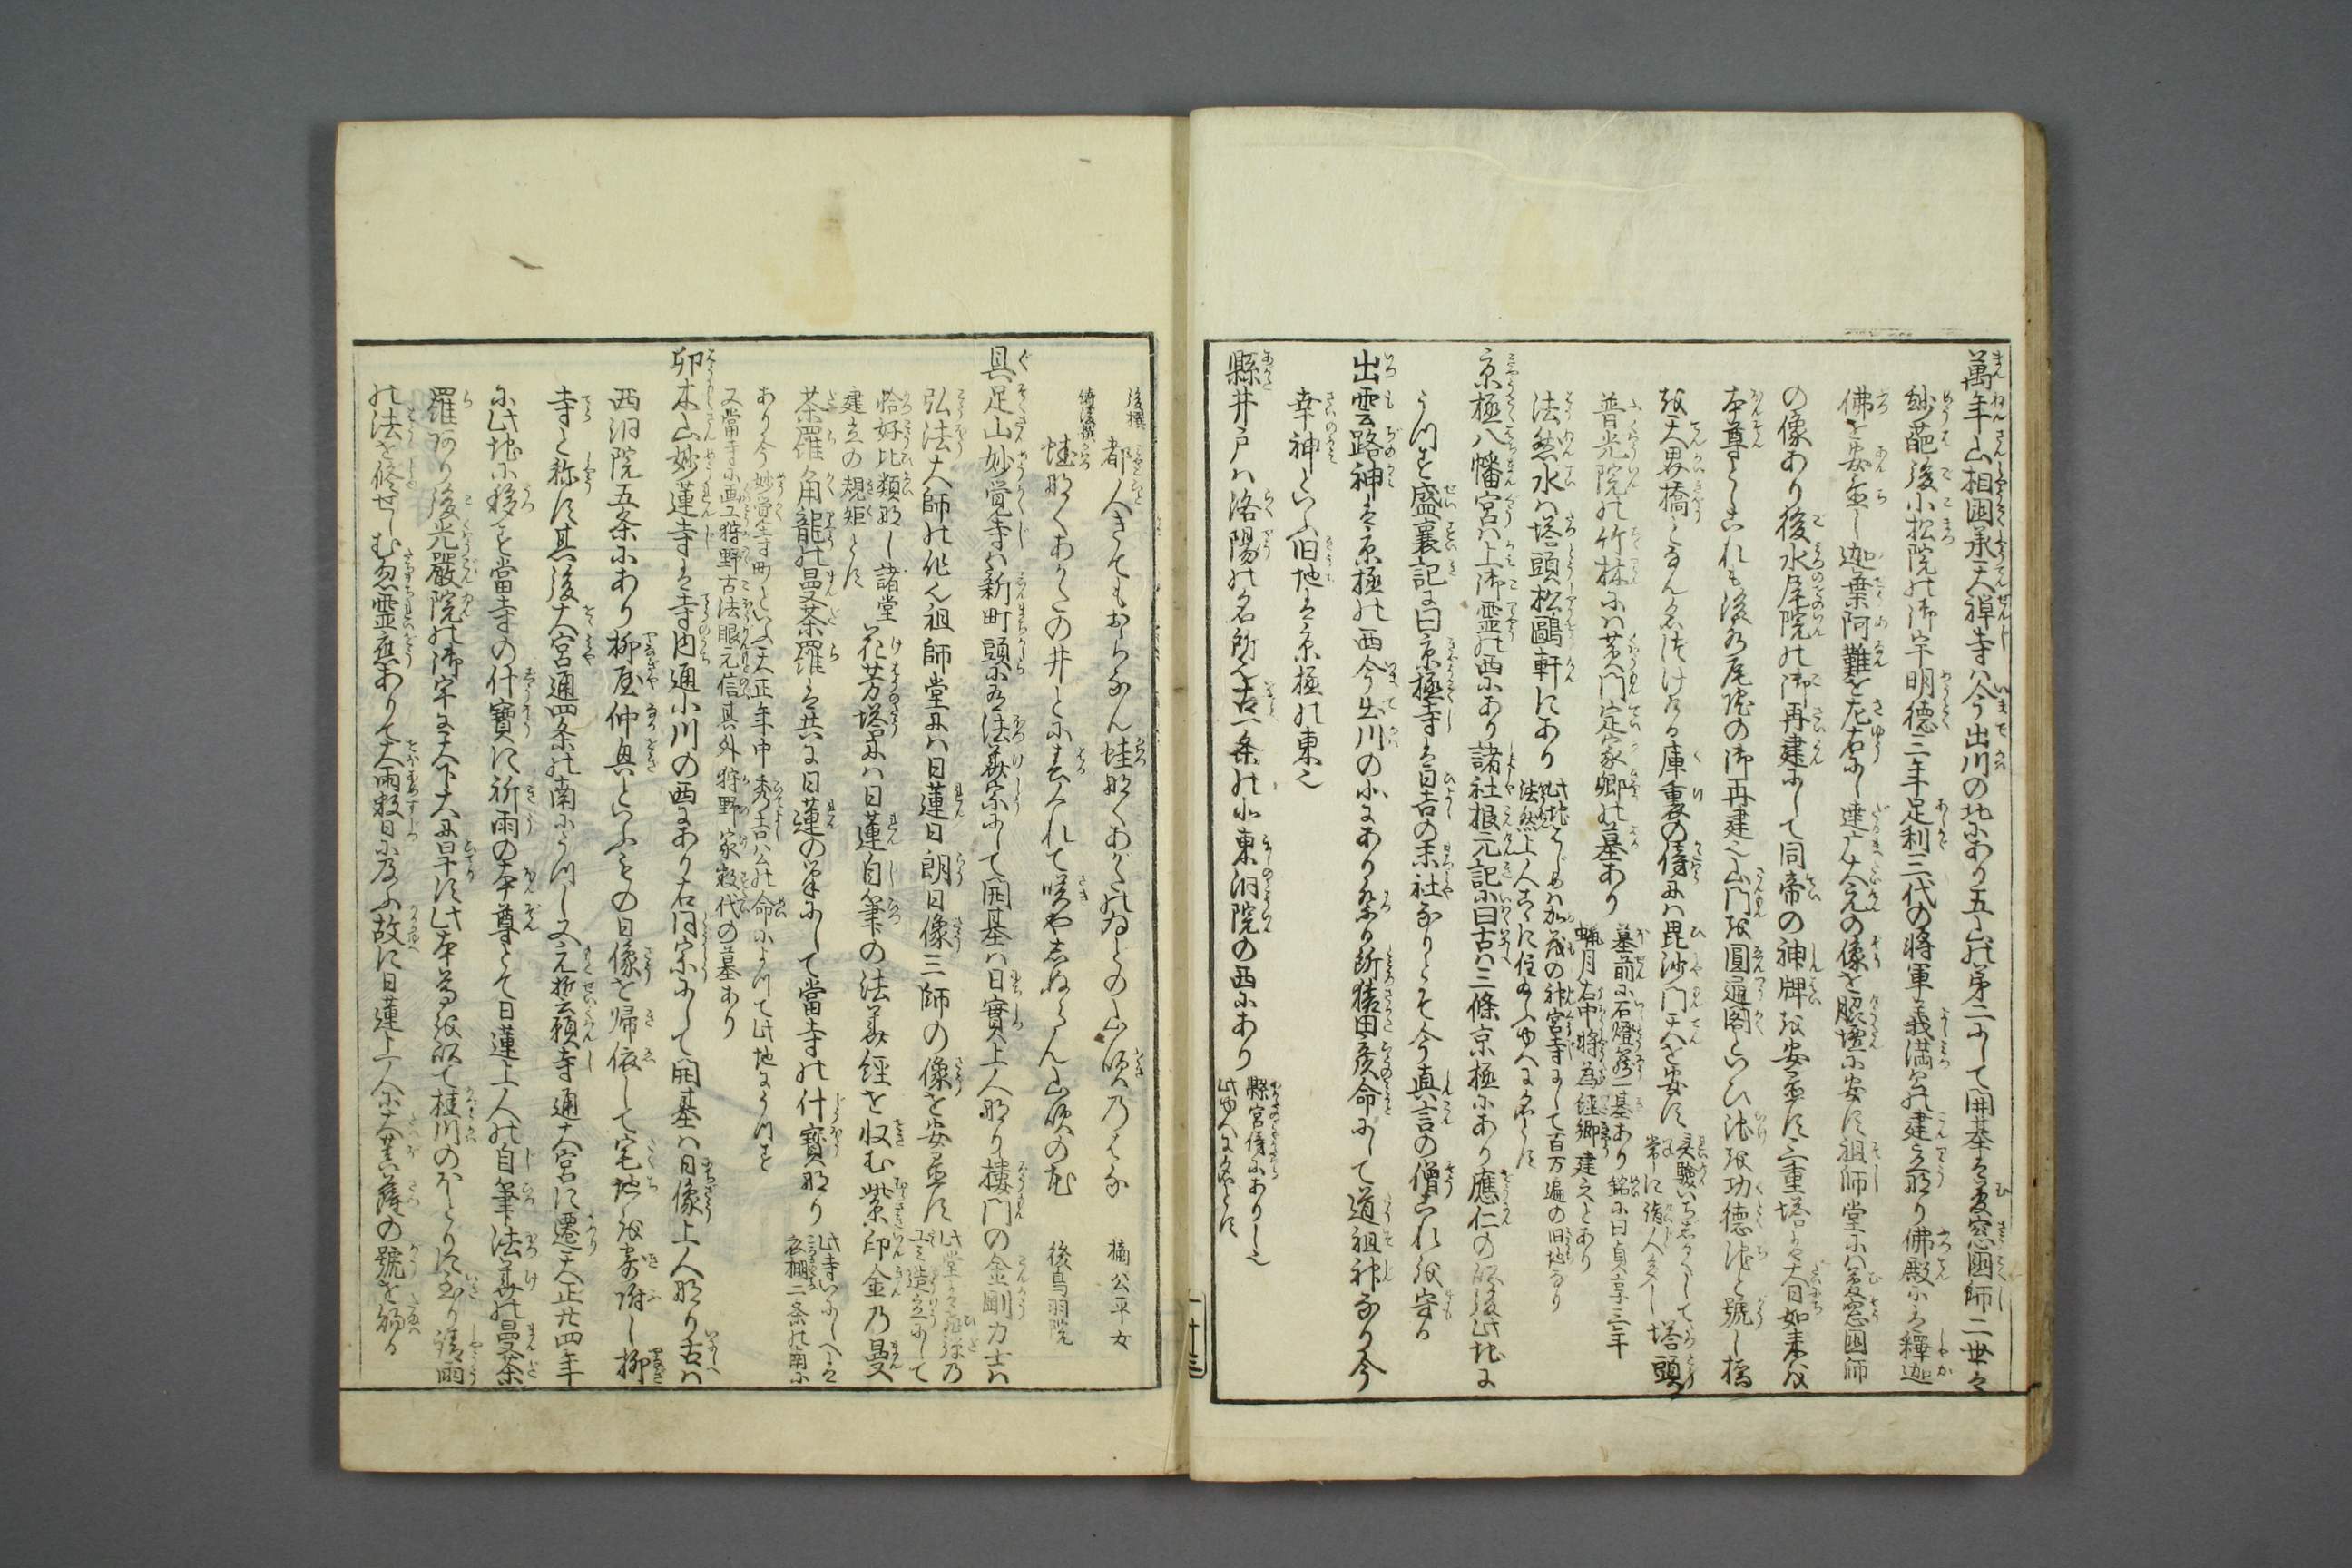 萬年山相国承天禅寺ハ今出川の北にあり五山の第二にして開基は夢窓国師二世は
妙葩後小松院の御宇明徳三年足利三代の将軍義満公の建立なり佛殿には釋迦
佛を安置し迦葉阿難を左右にし達广大元の像を脇壇に安ず祖師堂には夢窓国師
の像あり後水尾院の御再建にして同帝の神牌を安置す三重塔には大日如来を
本尊とすこれも後水尾院の御再建也山門を圓通閣といひ池を功徳池と號し橋
を天界橋となん名づけける庫裏の傍には毘沙門天を安ず
霊験いちじるしくして
常に諸人多し
塔頭
普光院の竹林には黄門定家卿の墓あり
墓前に石燈籠一基あり銘に曰貞享三年
蝋月右中将為経卿建之とあり
法然水は塔頭松鷗軒にあり
此地はじめは加茂の神宮寺にして百万遍の旧地なり
法然上人こゝに住給ふゆへに名とす
京極八幡宮は上御霊の西にあり諸社根元記に曰古は三條京極にあり應仁の後此地に
うつす盛衰記に曰京極寺は日吉の末社なりとぞ今真言の僧これを守る
出雲路神は京極の西今出川の北にあり祭る所猿田彦命にして道祖神なり今
幸神といふ旧地は京極の東也
縣井戸は洛陽の名所也古一条の北東洞院の西にあり
縣宮傍にありし也
此ゆへに名とす
後撰
都人きてもおらなん蛙なくあがたのゐどの山吹のはな
橘公平女
続後撰
蛙なくあがたの井どに春くれて咲やしぬらん山吹の花
後鳥羽院
具足山妙覚寺は新町頭にあり法華宗にして開基は日實上人なり楼門の金剛力士は
弘法大師の作也祖師堂には日蓮日朗日像三師の像を安置す
恰好比類なし諸堂
建立の規矩とす
花芳塔には日蓮自筆の法華経を収む紫印金の曼
荼羅角龍の曼荼羅は共に日蓮の筆にして當寺の什寶なり
あり今妙覚寺町といふ天正年中秀吉公の命によつて此地にうつす
又當寺に画工狩野古法眼元信其外狩野家数代の墓あり
卯木山妙蓮寺は寺内通小川の西にあり右同宗にして開基は日像上人なり古は
西洞院五条にあり柳屋仲興といふもの日像を帰依して宅地を寄附し柳
寺と称す其後大宮通四条の南にうつし又元誓願寺通大宮に遷天正廿四年
に此地に移す當寺の什寶に祈雨の本尊とて日蓮上人の自筆法華の曼荼
羅あり後光嚴院の御宇に天下大に旱す此本尊を以て桂川のほとりに至り請雨
の法を修せしむ忽霊應ありて大雨数日に及ふ故に日蓮上人に大菩薩の號を賜る